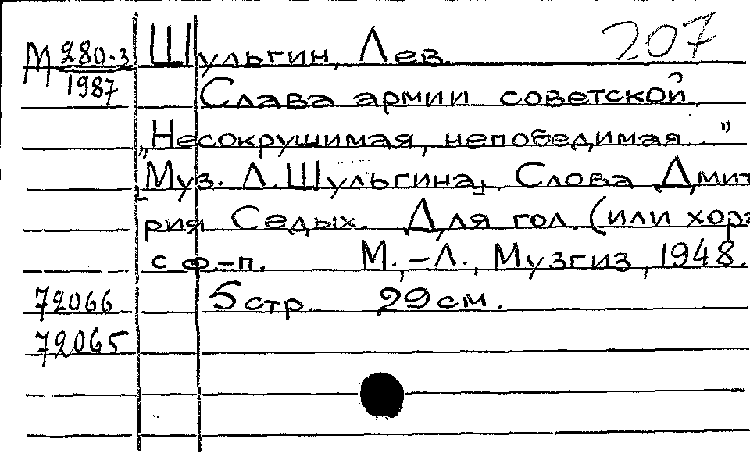 М 280-3 Шульгин, Лев. 207
1987 Слава армии советской.
„Несокрушимая, непобедимая..."
[Муз.] Л. Шульгина, Слова Дмит
рия Седых. Для гол. (или хора)
с ф-п. М.-Л., Музгиз, 1948.
72066 5 стр. 29 см.
72065